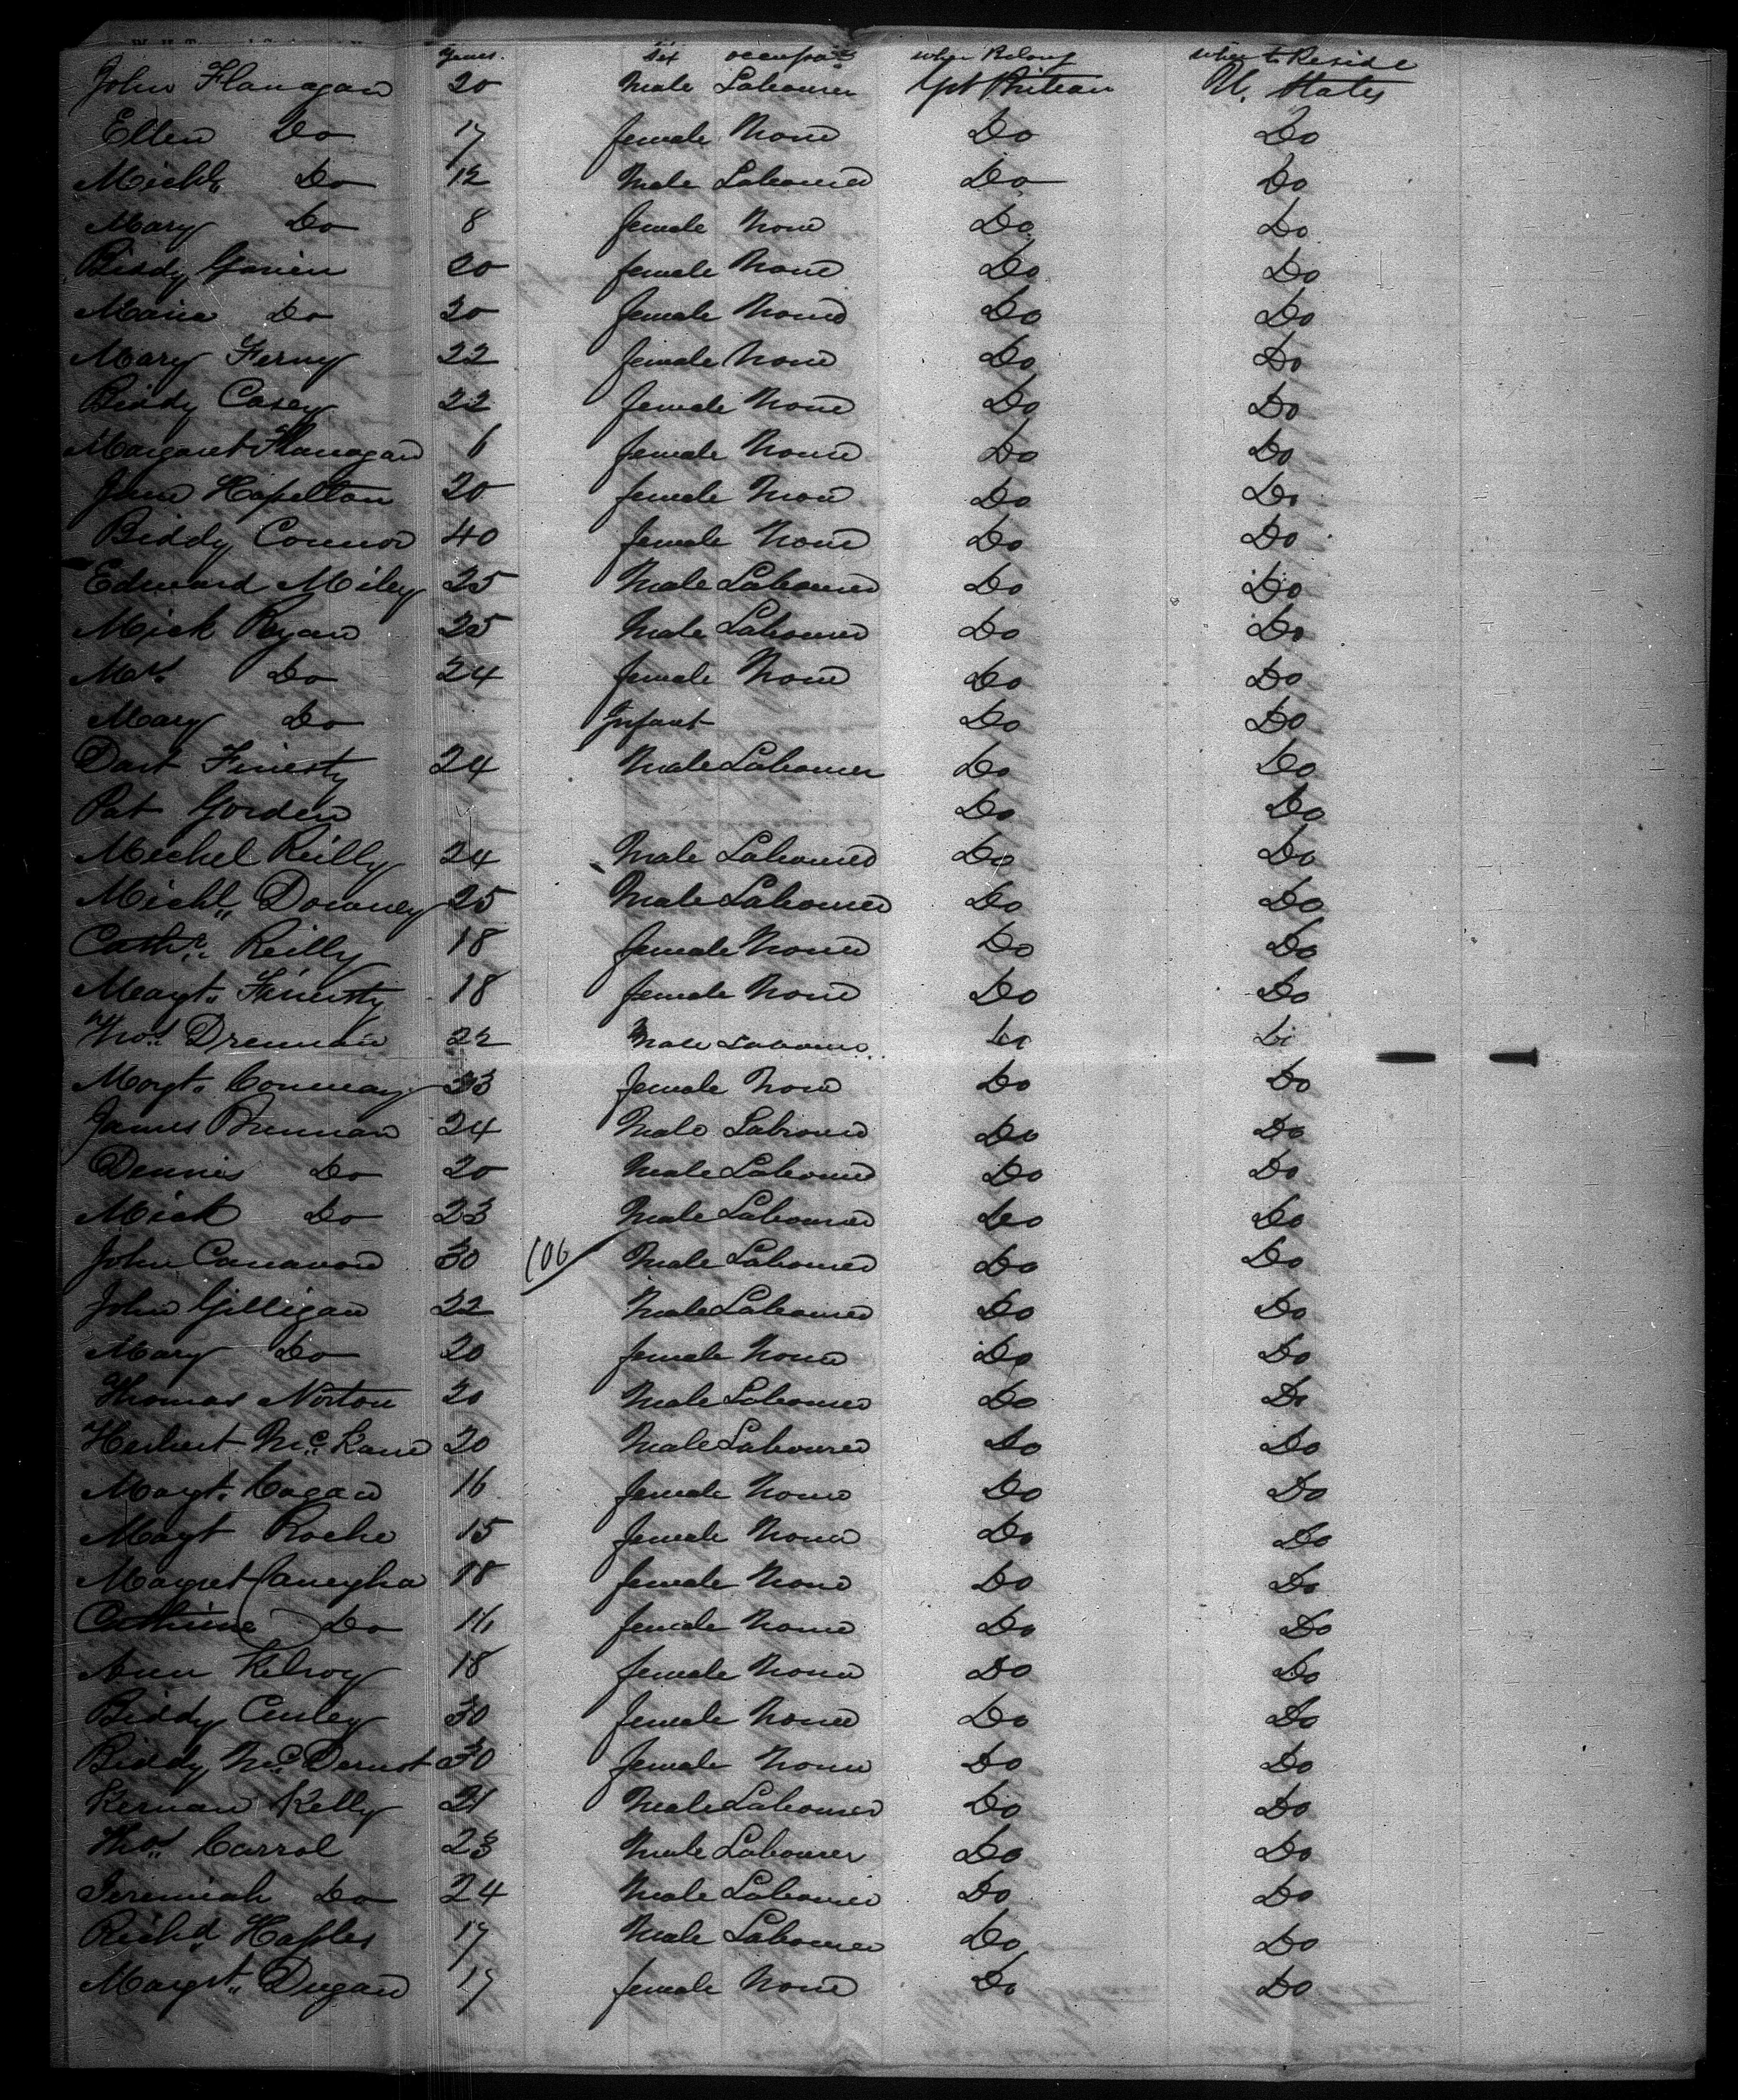 Years. Sex occupat where Belong where to Reside
John Flanagan 20 Male Labourer Gt Britean U. States
Ellen Do 17 female None Do Do
Michl Do 12 Male Labourer Do Do
Mary Do 8 female None Do Do
Biddy Gavien 20 female None Do Do
Maria Do 20 female None Do Do
Mary Ferny 22 female None Do Do
Biddy Casey 22 female None Do Do
Margaret Flanagan 6 female None Do Do
Jane Hapelton 20 female None Do Do
Biddy Connor 40 female None Do Do
Edward Miley 25 Male Labourer Do Do
Mick Ryan 25 Male Labourer Do Do
Mrs Do 24 female None Do Do
Mary Do Infant Do Do
Dart Finerty 24 Male Labourer Do Do
Pat Gorden Do Do
Mechel Reilly 24 Male Labourer Do Do
Michl Downey 25 Male Labourer Do Do
Cathr. Reilly 18 female None Do Do
Margt. Finerty 18 female None Do Do
Thos Drennan 22 Male Labourer Do Do
Margt. Conway 33 female None Do Do
James Brennan 24 Male Labourer Do Do
Dennis Do 20 Male Labourer Do Do
Mick Do 23 Male Labourer Do Do
John Canavan 30 100 Male Labourer Do Do
John Gilligan 22 Male Labourer Do Do
Mary Do 20 female None Do Do
Thomas Norton 20 Male Labourer Do Do
Herbert Mc. Kane 20 Male Labourer Do Do
Margt. Cagan 16 female None Do Do
Magt Roche 15 female None Do Do
Magret Caneyha 18 female None Do Do
Cathrine Do 16 female None Do Do
Ann Kelroy 18 female None Do Do
Biddy Cenley 30 female None Do Do
Biddy McDermot 30 female None Do Do
Kernan Kelly 21 Male Labourer Do Do
Thos Carrol 23 Male Labourer Do Do
Jeremiah Do 24 Male Labourer Do Do
Richd Haples 17 Male Labourer Do Do
Margrt. Dugan 17 female None Do Do